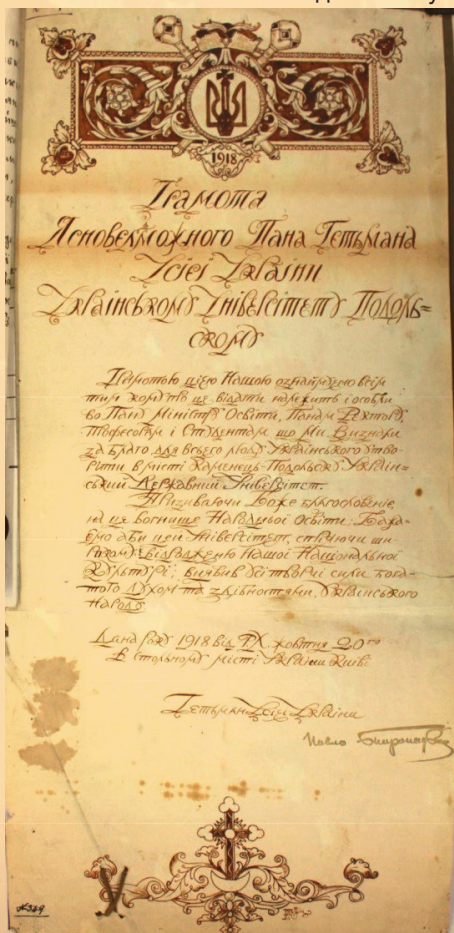 1918
Грамота
Ясновельможного Пана Гетьмана
Усієї України
Українському Університету Подоль=
скому
Грамотою цією Нашою ознаймуємо всім
тим кому то це відати належить і особли
во Пану Міністру Освіти, Панам Ректору,
Професорам і Студентам що Ми Визнали
за благо для всього люду Українського утво
рити в місті Каменець-Подольску Україн=
ський Державний Університет.
Призиваючи Боже благословеніє
на це вогнище Народньої Освіти Бажа=
ємо аби цей Університет, сприяючи ши=
рокому відродженю Нашої Національної
Культурі, виявив усі творчі сили бога=
того духом та здібностями, Українського
Народу
Дана року 1918 від Р.Х. жовтня 20го
В стольному місті України Київі
Гетьман Усієї України
Павло Скоропадський
№329